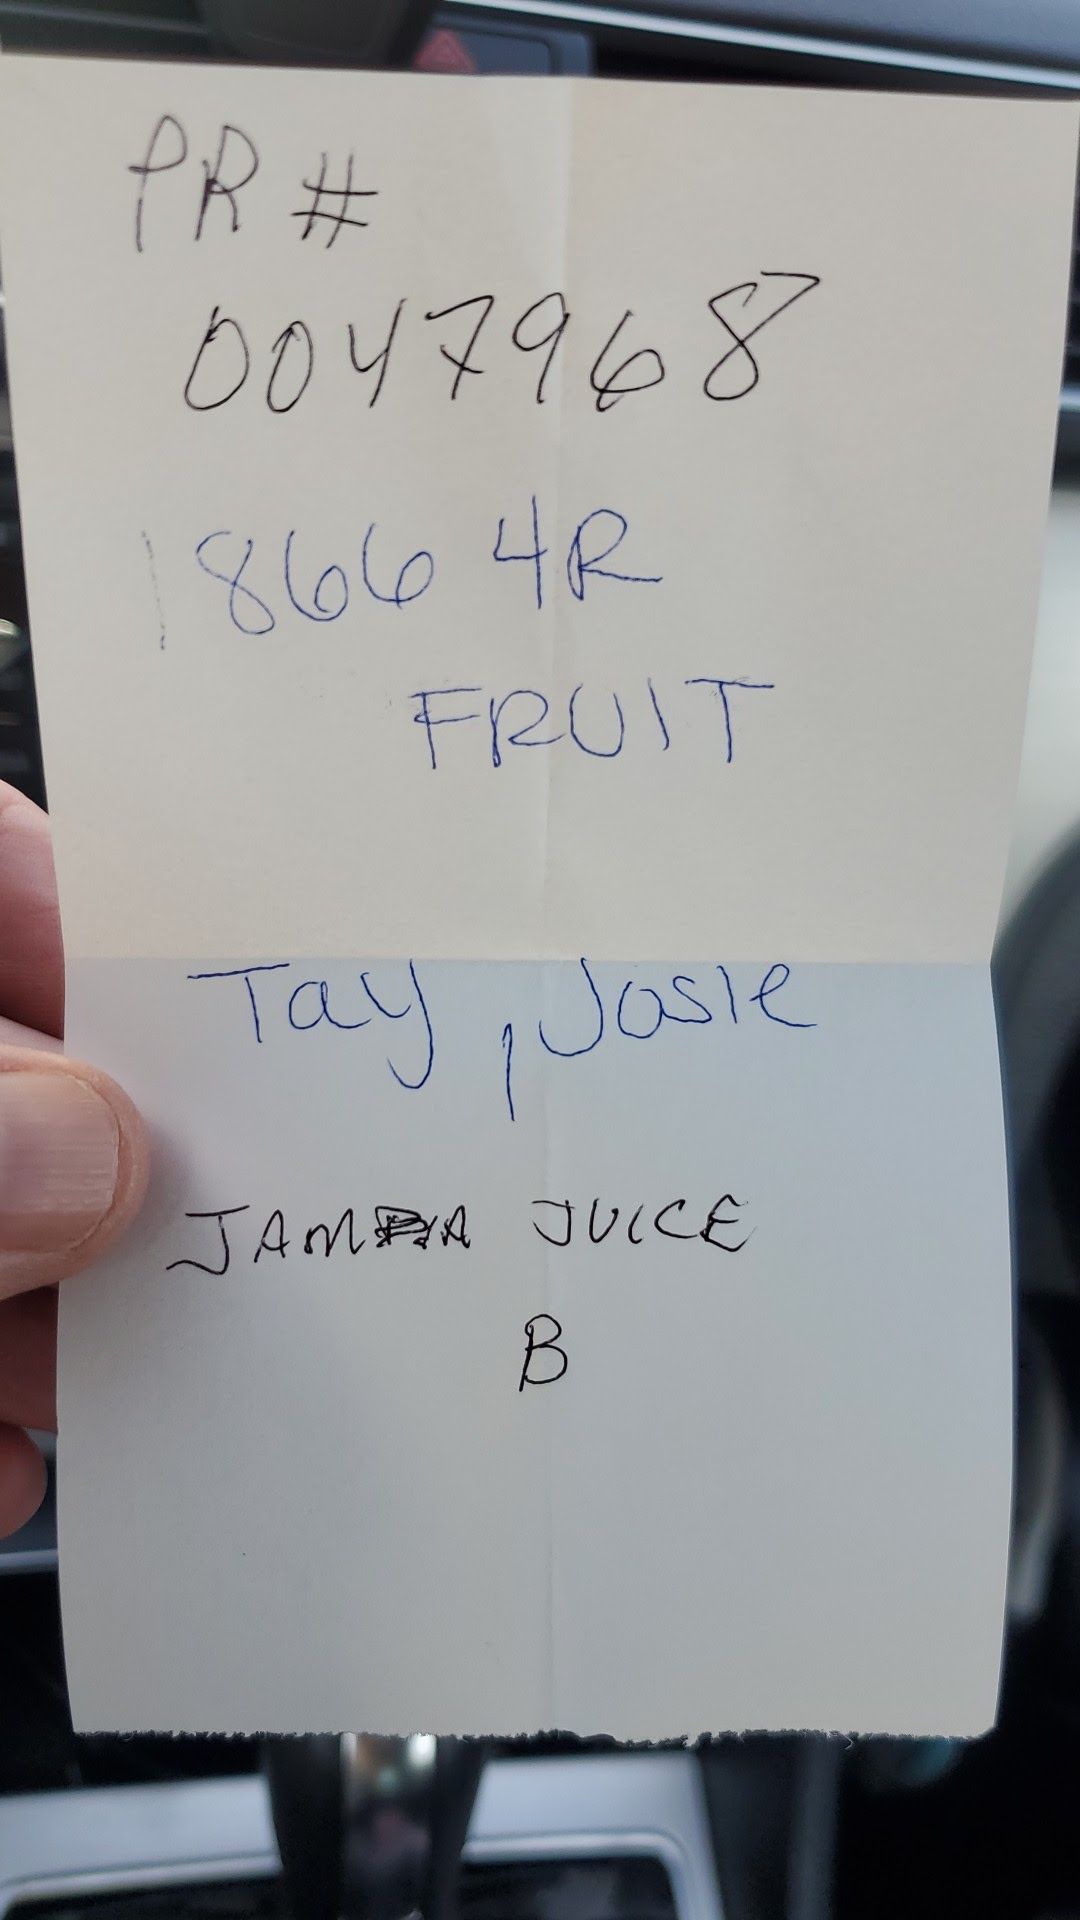 PR #
0047968
1866 4R
FRUIT
Tay, Josie
JAMBA JUICE
B